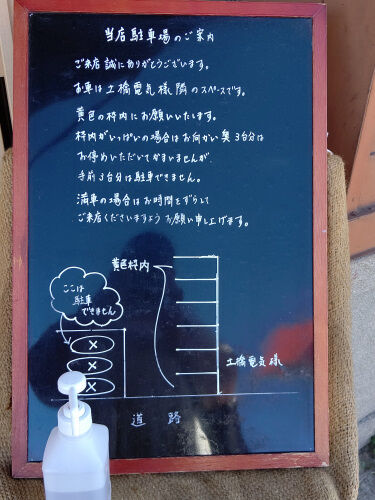 当店駐車場のご案内
ご来店誠にありがとうございます。
お車は土橋電気様隣のスペースです。
黄色の枠内にお願いいたします。
枠内がいっぱいの場合はお向かい奥3台分は
お停めいただいてかまいませんが、
手前3台分は駐車できません。
満車の場合はお時間をずらして
ご来店くださいますようお願い申し上げます。
黄色枠内
ここは
駐車
できません
×
×
×
土橋電気様
道路